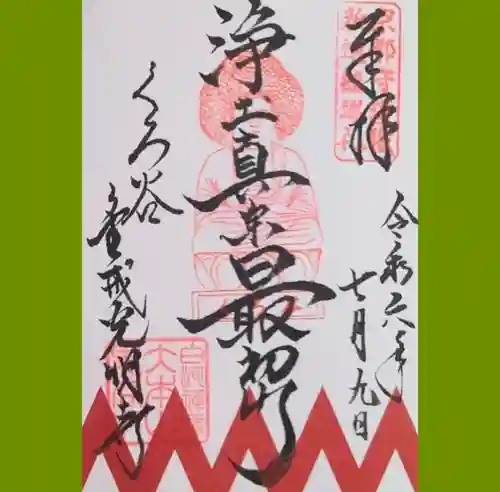 奉拝
令和六年
七月九日
浄土真宗最初門
くろ谷
金戒光明寺